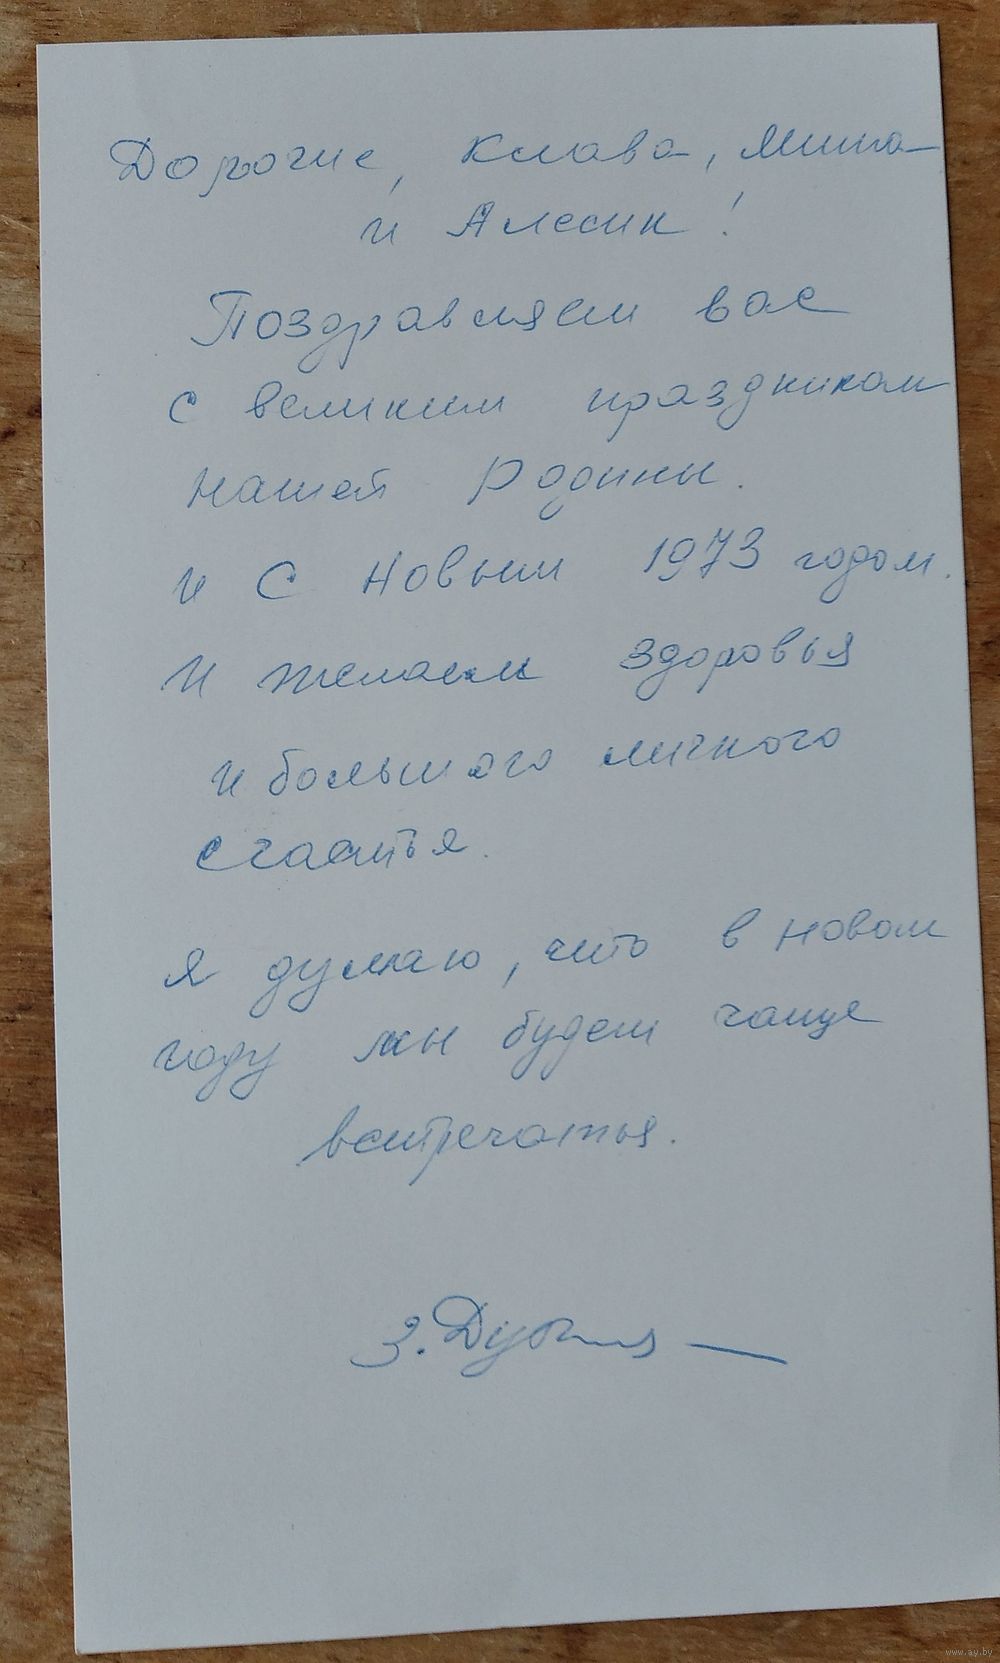 Дорогие, Клава, Миша
и Алесик!
Поздравляем вас
с великим праздником
нашей Родины.
и С Новым 1973 годом.
И желаем здоровья
и большого личного
счастья.
Я думаю, что в новом
году мы будем чаще
встречатья.
З.
www.ay.by